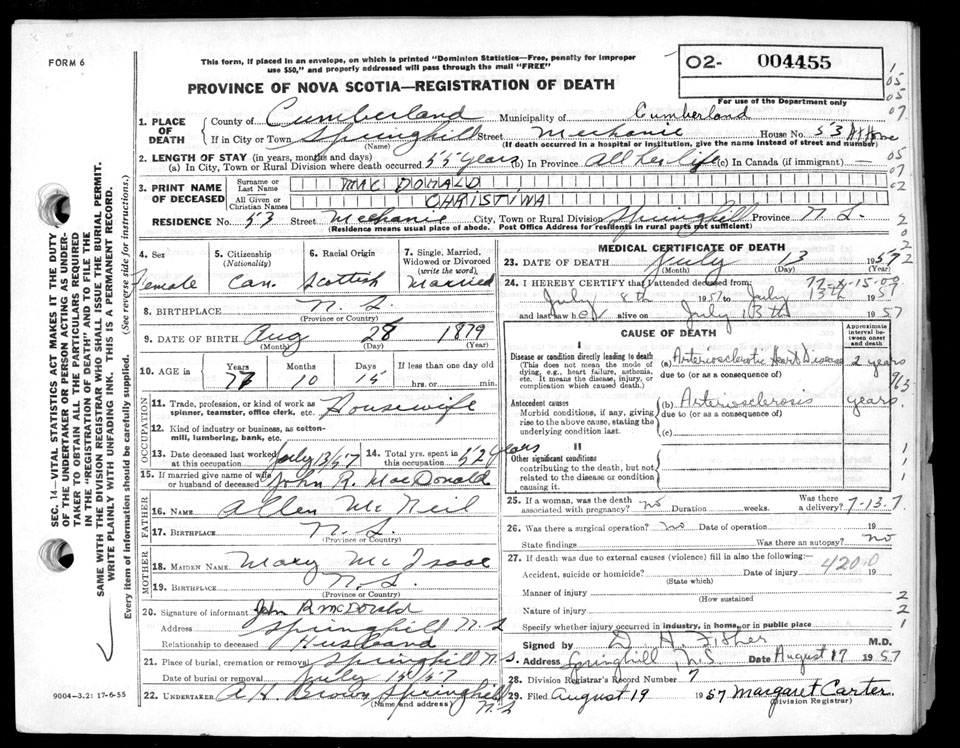 FORM 6
This form, if placed in an envelope, on which is printed "Dominion Statistics—Free, penalty for improper
use $50," and properly addressed will pass through the mail "FREE"
PROVINCE OF NOVA SCOTIA—REGISTRATION OF DEATH
O2- 004455
For use of the Department only
1. PLACE OF DEATH
County of Cumberland Municipality of Cumberland
If in City or Town Springhill Street Mechanic House No. 53 At Home
(Name) (If death occurred in a hospital or institution, give the name instead of street and number)
2. LENGTH OF STAY (in years, months and days)
(a) In City, Town or Rural Division where death occurred 55 years (b) In Province All her life (c) In Canada (if immigrant) —
3. PRINT NAME OF DECEASED
Surname or Last Name MAC DONALD
All Given or Christian Names CHRISTINA
RESIDENCE No. 53 Street Mechanic City, Town or Rural Division Springhill Province N.S.
(Residence means usual place of abode. Post Office Address for residents in rural parts not sufficient)
4. Sex Female
5. Citizenship (Nationality) Can.
6. Racial Origin Scottish
7. Single, Married, Widowed or Divorced (write the word) Married
8. BIRTHPLACE N.S.
(Province or Country)
9. DATE OF BIRTH Aug 28 1879
(Month) (Day) (Year)
10. AGE in Years 77 Months 10 Days 15 If less than one day old
hrs. or min.
OCCUPATION
11. Trade, profession or kind of work as spinner, teamster, office clerk, etc. Housewife
12. Kind of industry or business, as cotton-mill, lumbering, bank, etc.
13. Date deceased last worked at this occupation July 13/57 14. Total yrs. spent in this occupation 52 years
15. If married give name of wife or husband of deceased John R. MacDonald
FATHER
16. NAME Allen McNeil
17. BIRTHPLACE N.S.
(Province or Country)
MOTHER
18. MAIDEN NAME Mary McIsaac
19. BIRTHPLACE N.S.
(Province or Country)
20. Signature of informant John R McDonald
Address Springhill N.S
Relationship to deceased Husband
21. Place of burial, cremation or removal Springhill N.S.
Date of burial or removal July 15/57
22. UNDERTAKER A.H. Brown Springhill N.S
(Name and address)
MEDICAL CERTIFICATE OF DEATH
23. DATE OF DEATH July 13 1957
(Month) (Day) (Year)
24. I HEREBY CERTIFY that I attended deceased from
July 8th 1957 to July 13th 1957
and last saw her alive on July 13th 1957
CAUSE OF DEATH
Approximate interval between onset and death
I
Disease or condition directly leading to death
(This does not mean the mode of dying, e.g., heart failure, asthenia, etc. It means the disease, injury, or complication which caused death.)
(a) Arteriosclerotic Heart Disease 2 years
due to (or as a consequence of)
Antecedent causes
Morbid conditions, if any, giving rise to the above cause, stating the underlying condition last.
(b) Arteriosclerosis years.
due to (or as a consequence of)
(c)
II
Other significant conditions
contributing to the death, but not related to the disease or condition causing it.
25. If a woman, was the death associated with pregnancy? no Duration weeks. Was there a delivery? 7-13.7
26. Was there a surgical operation? No Date of operation 19
State findings Was there an autopsy? no
27. If death was due to external causes (violence) fill in also the following:
Accident, suicide or homicide? Date of injury 19
(State which)
420.0
Manner of injury
(How sustained
Nature of injury
Specify whether injury occurred in industry, in home, or in public place
Signed by D. A. Fisher M.D.
Address Springhill, N.S Date August 17 1957
28. Division Registrar's Record Number 7
29. Filed August 19 1957 Margaret Carter.
(Division Registrar)
SEC. 14—VITAL STATISTICS ACT MAKES IT THE DUTY
OF THE UNDERTAKER OR PERSON ACTING AS UNDER-
TAKER TO OBTAIN ALL THE PARTICULARS REQUIRED
IN THE "REGISTRATION OF DEATH" AND TO FILE THE
SAME WITH THE DIVISION REGISTRAR WHO SHALL ISSUE THE BURIAL PERMIT.
WRITE PLAINLY WITH UNFADING INK. THIS IS A PERMANENT RECORD.
Every item of information should be carefully supplied. (See reverse side for instructions.)
9004—3.2: 17-6-55